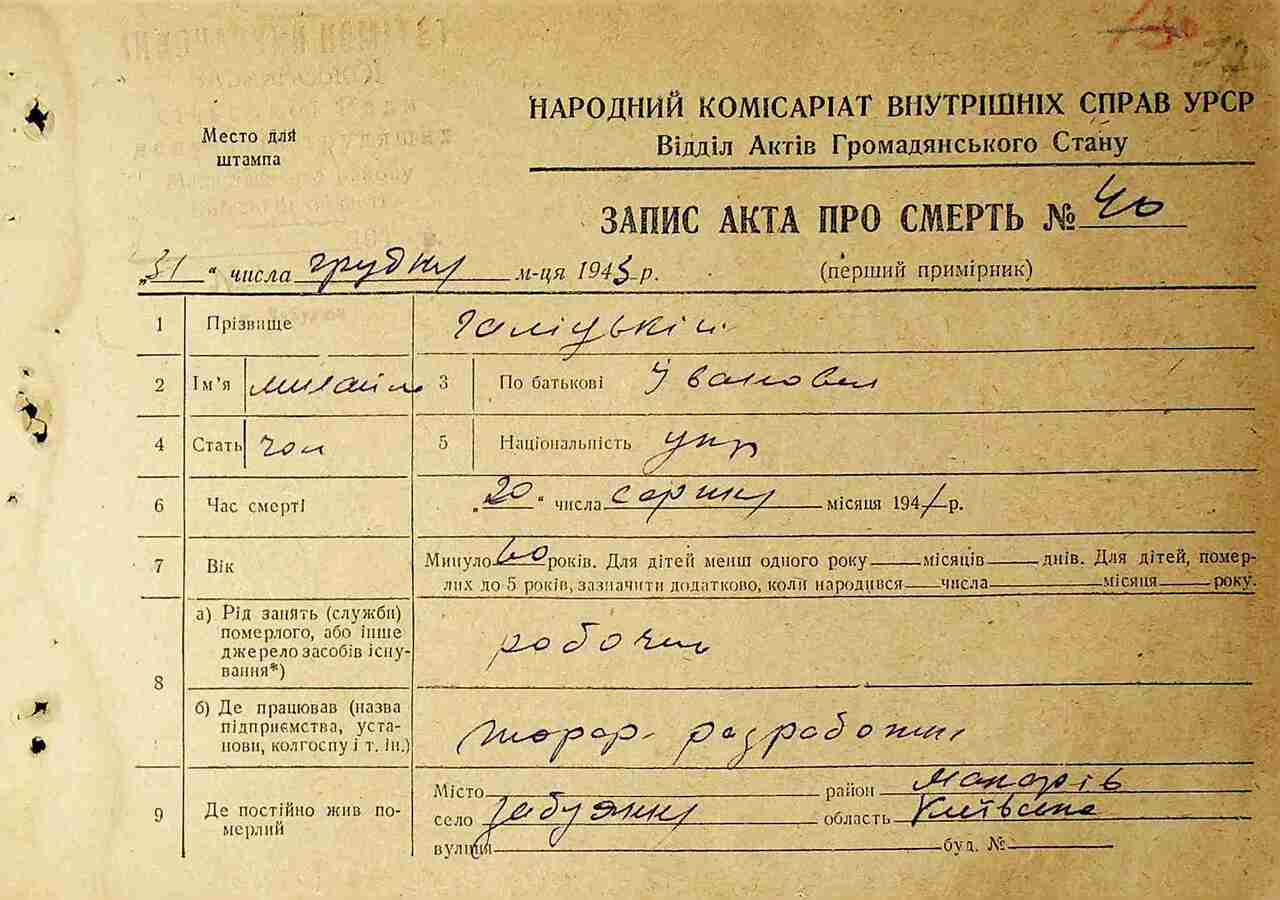 НАРОДНИЙ КОМІСАРІАТ ВНУТРІШНІХ СПРАВ УРСР
Место для штампа
Відділ Актів Громадянського Стану
ЗАПИС АКТА ПРО СМЕРТЬ № 40
„31“ числа грудня м-ця 1943 р. (перший примірник)
1 Прізвище Галіцькій
2 Ім'я Михайло 3 По батькові Іванович
4 Стать чол 5 Національність укр
6 Час смерті „20“ числа серпня місяця 1941 р.
7 Вік Минуло 60 років. Для дітей менш одного року місяців днів. Для дітей, помер-
лих до 5 років, зазначити додатково, коли народився числа місяця року.
8 а) Рід занять (служби)
померлого, або інше
джерело засобів існу-
вання*) робочий
б) Де працював (назва
підприємства, уста-
нови, колгоспу і т. ін.) разработки
9 Де постійно жив по-
мерлий
Місто район Макарів
село Забуяння область Київська
вулиця буд. №